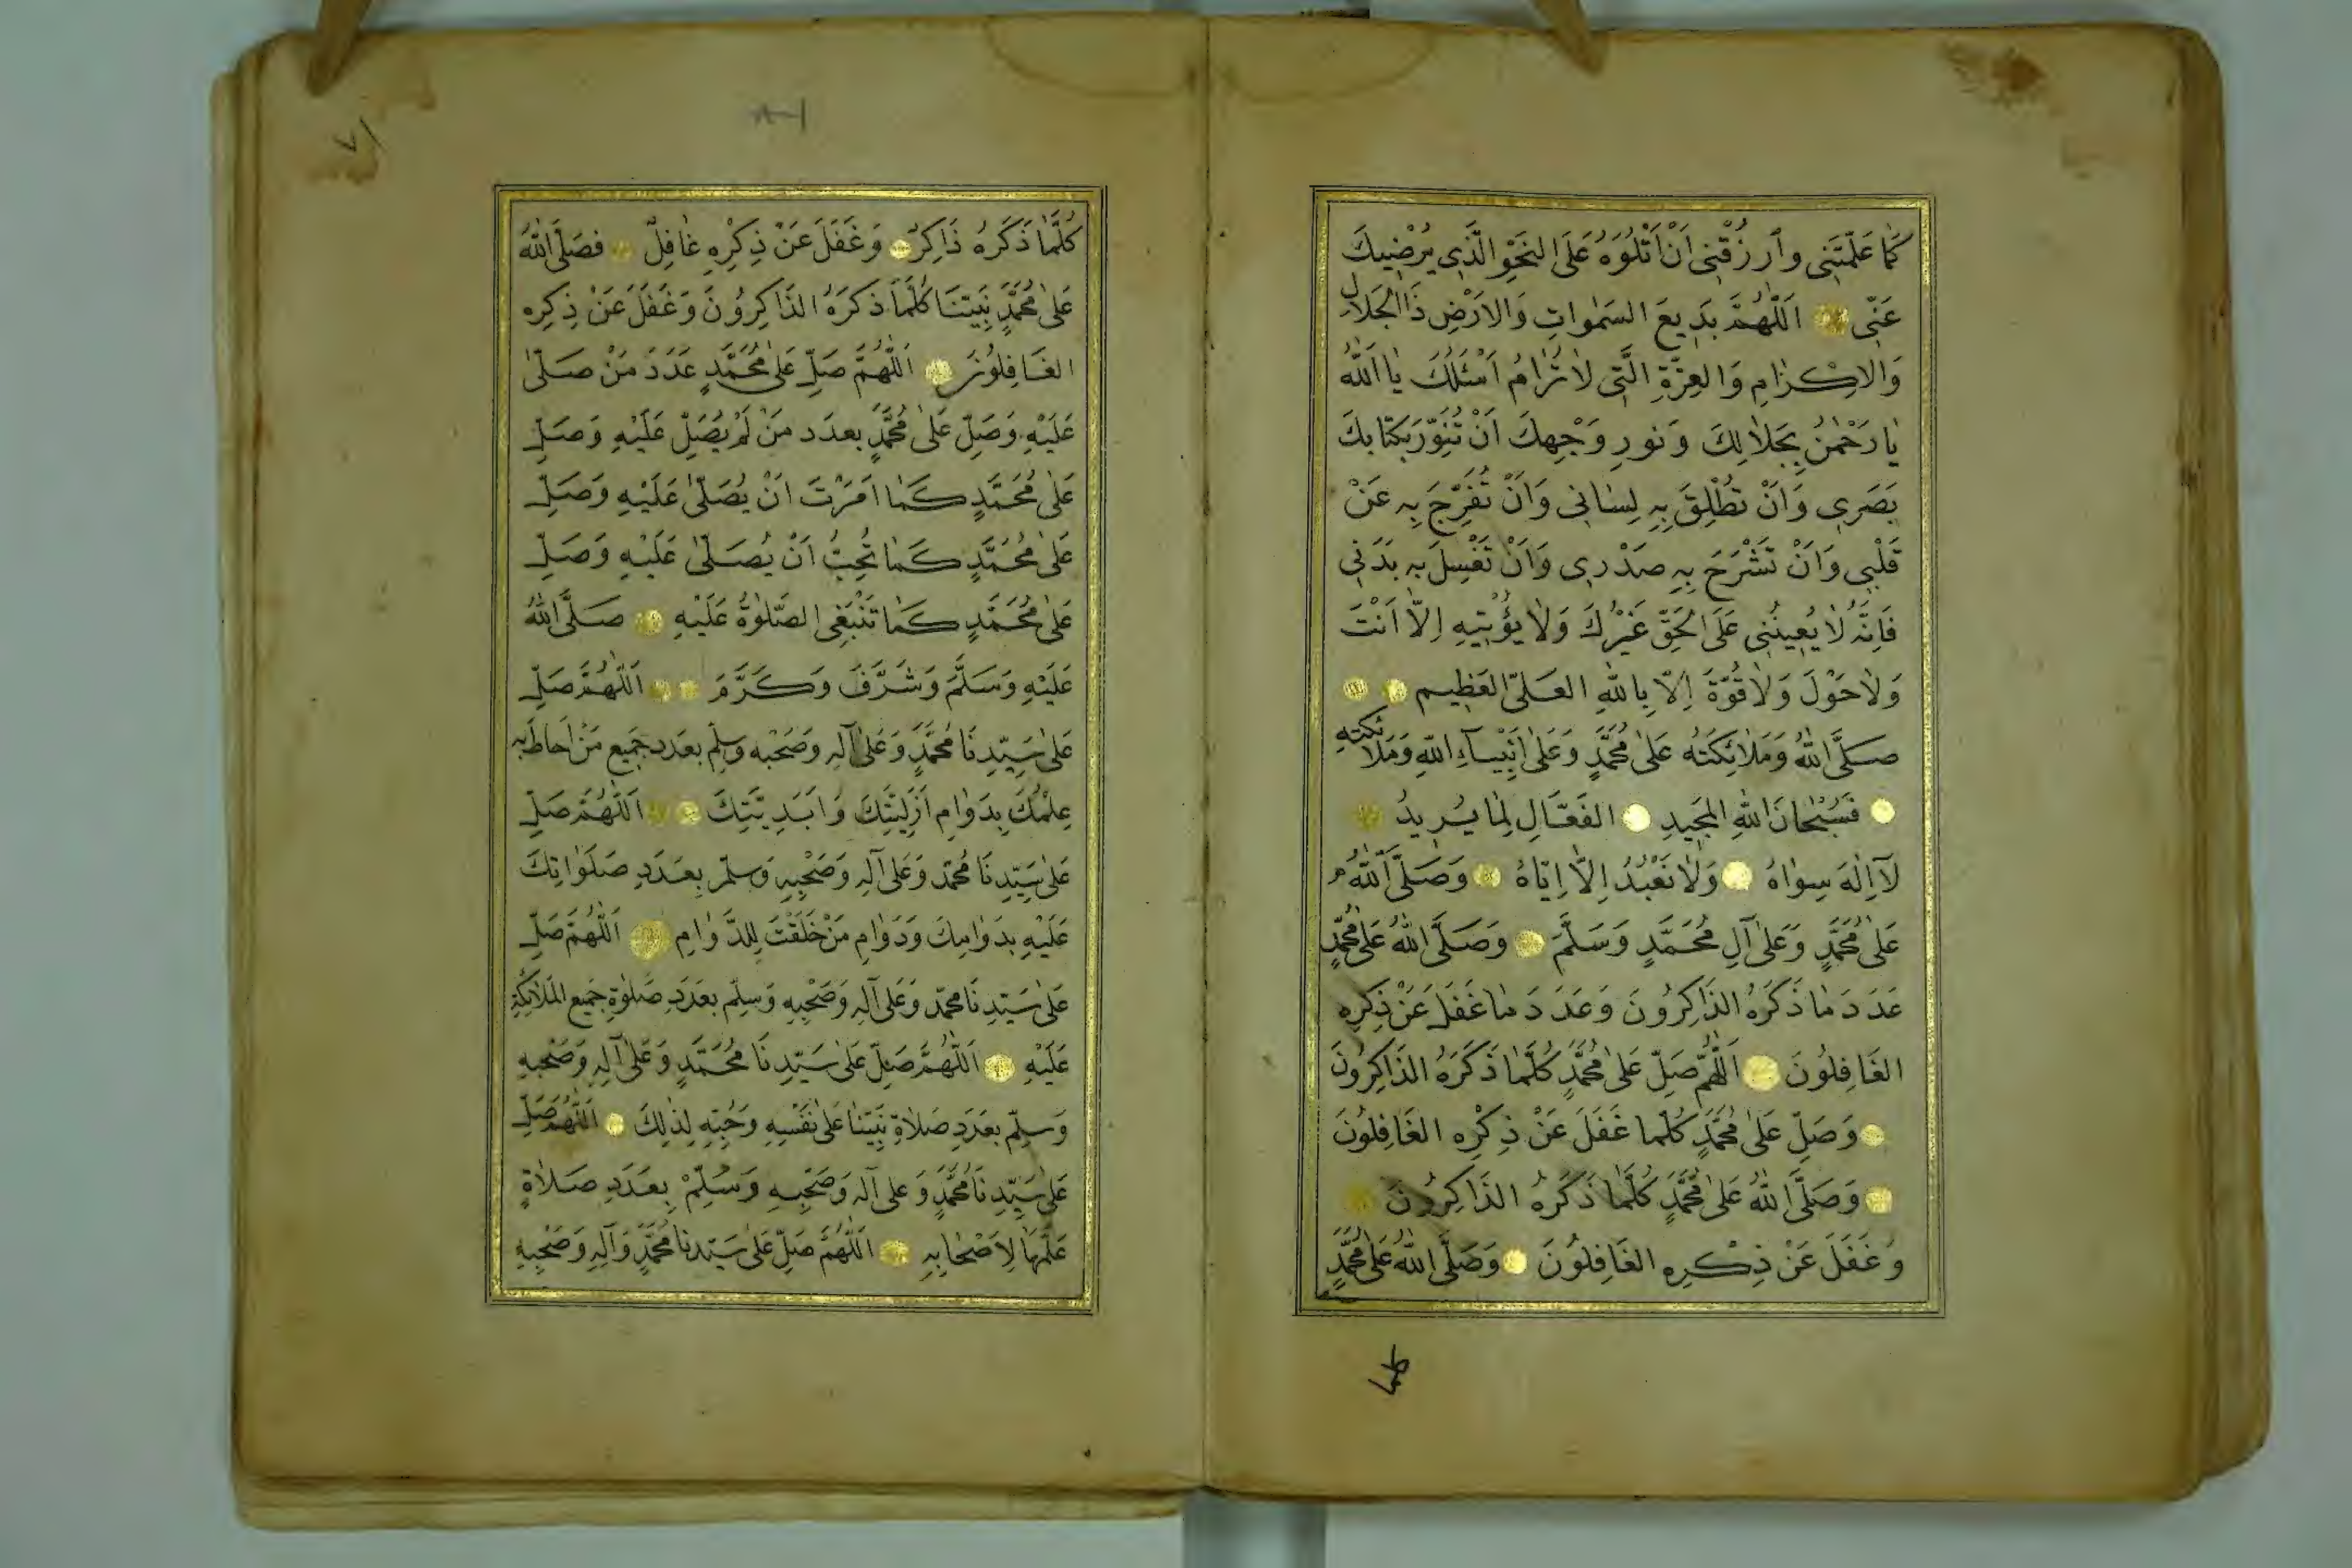 كَمَا عَلَّمْتَنِي وَارْزُقْنِي اَنْ اَتْلُوَهُ عَلَى النَّحْوِ الَّذِي يُرْضِيكَ
عَنِّي اَللّٰهُمَّ بَدِيعَ السَّمٰوَاتِ وَالاَرْضِ ذَا الْجَلَالِ
وَالاِكْرَامِ وَالعِزَّةِ الَّتِي لَا تُرَامُ اَسْئَلُكَ يَا اَللّٰهُ
يَا رَحْمٰنُ بِجَلَالِكَ وَنُورِ وَجْهِكَ اَنْ تُنَوِّرَ بِكِتَابِكَ
بَصَرِي وَاَنْ تُطْلِقَ بِهِ لِسَانِي وَاَنْ تُفَرِّجَ بِهِ عَنْ
قَلْبِي وَاَنْ تَشْرَحَ بِهِ صَدْرِي وَاَنْ تَغْسِلَ بِهِ بَدَنِي
فَاِنَّهُ لَا يُعِينُنِي عَلَى الْحَقِّ غَيْرُكَ وَلَا يُؤْتِيهِ اِلَّا اَنْتَ
وَلَا حَوْلَ وَلَا قُوَّةَ اِلَّا بِاللّٰهِ العَلِيِّ العَظِيمِ
صَلَّى اللّٰهُ وَمَلَائِكَتُهُ عَلَى مُحَمَّدٍ وَعَلَى اَنْبِيَاءِ اللّٰهِ وَمَلَائِكَتِهِ
فَسُبْحَانَ اللّٰهِ الْمَجِيدِ الفَعَّالِ لِمَا يُرِيدُ
لَا اِلٰهَ سِوَاهُ وَلَا نَعْبُدُ اِلَّا اِيَّاهُ وَصَلَّى اللّٰهُ
عَلَى مُحَمَّدٍ وَعَلَى آلِ مُحَمَّدٍ وَسَلَّمَ وَصَلَّى اللّٰهُ عَلَى مُحَمَّدٍ
عَدَدَ مَا ذَكَرَهُ الذَّاكِرُونَ وَعَدَدَ مَا غَفَلَ عَنْ ذِكْرِهِ
الغَافِلُونَ اَللّٰهُمَّ صَلِّ عَلَى مُحَمَّدٍ كُلَّمَا ذَكَرَهُ الذَّاكِرُونَ
وَصَلِّ عَلَى مُحَمَّدٍ كُلَّمَا غَفَلَ عَنْ ذِكْرِهِ الغَافِلُونَ
وَصَلَّى اللّٰهُ عَلَى مُحَمَّدٍ كُلَّمَا ذَكَرَهُ الذَّاكِرُونَ
وَغَفَلَ عَنْ ذِكْرِهِ الغَافِلُونَ وَصَلَّى اللّٰهُ عَلَى مُحَمَّدٍ
كلما
٧١
كُلَّمَا ذَكَرَهُ ذَاكِرٌ وَغَفَلَ عَنْ ذِكْرِهِ غَافِلٌ فَصَلَّى اللّٰهُ
عَلَى مُحَمَّدٍ نَبِيِّنَا كُلَّمَا ذَكَرَهُ الذَّاكِرُونَ وَغَفَلَ عَنْ ذِكْرِهِ
الغَافِلُونَ اَللّٰهُمَّ صَلِّ عَلَى مُحَمَّدٍ عَدَدَ مَنْ صَلَّى
عَلَيْهِ وَصَلِّ عَلَى مُحَمَّدٍ بِعَدَدِ مَنْ لَمْ يُصَلِّ عَلَيْهِ وَصَلِّ
عَلَى مُحَمَّدٍ كَمَا اَمَرْتَ اَنْ يُصَلَّى عَلَيْهِ وَصَلِّ
عَلَى مُحَمَّدٍ كَمَا تُحِبُّ اَنْ يُصَلَّى عَلَيْهِ وَصَلِّ
عَلَى مُحَمَّدٍ كَمَا تَنْبَغِي الصَّلٰوةُ عَلَيْهِ صَلَّى اللّٰهُ
عَلَيْهِ وَسَلَّمَ وَشَرَّفَ وَكَرَّمَ اَللّٰهُمَّ صَلِّ
عَلَى سَيِّدِنَا مُحَمَّدٍ وَعَلَى آلِهِ وَصَحْبِهِ وَسَلِّمْ بِعَدَدِ جَمِيعِ مَنْ اَحَاطَ بِهِ
عِلْمُكَ بِدَوَامِ اَزَلِيَّتِكَ وَاَبَدِيَّتِكَ اَللّٰهُمَّ صَلِّ
عَلَى سَيِّدِنَا مُحَمَّدٍ وَعَلَى آلِهِ وَصَحْبِهِ وَسَلِّمْ بِعَدَدِ صَلَوَاتِكَ
عَلَيْهِ بِدَوَامِكَ وَدَوَامِ مَنْ خَلَقْتَ لِلدَّوَامِ اَللّٰهُمَّ صَلِّ
عَلَى سَيِّدِنَا مُحَمَّدٍ وَعَلَى آلِهِ وَصَحْبِهِ وَسَلِّمْ بِعَدَدِ صَلٰوةِ جَمِيعِ المَلَائِكَةِ
عَلَيْهِ اَللّٰهُمَّ صَلِّ عَلَى سَيِّدِنَا مُحَمَّدٍ وَعَلَى آلِهِ وَصَحْبِهِ
وَسَلِّمْ بِعَدَدِ صَلَاةِ نَبِيِّنَا عَلَى نَفْسِهِ وَحُبِّهِ لِذٰلِكَ اَللّٰهُمَّ صَلِّ
عَلَى سَيِّدِنَا مُحَمَّدٍ وَعَلَى آلِهِ وَصَحْبِهِ وَسَلِّمْ بِعَدَدِ صَلَاةٍ
عَلَّمَهَا لِاَصْحَابِهِ اَللّٰهُمَّ صَلِّ عَلَى سَيِّدِنَا مُحَمَّدٍ وَآلِهِ وَصَحْبِهِ